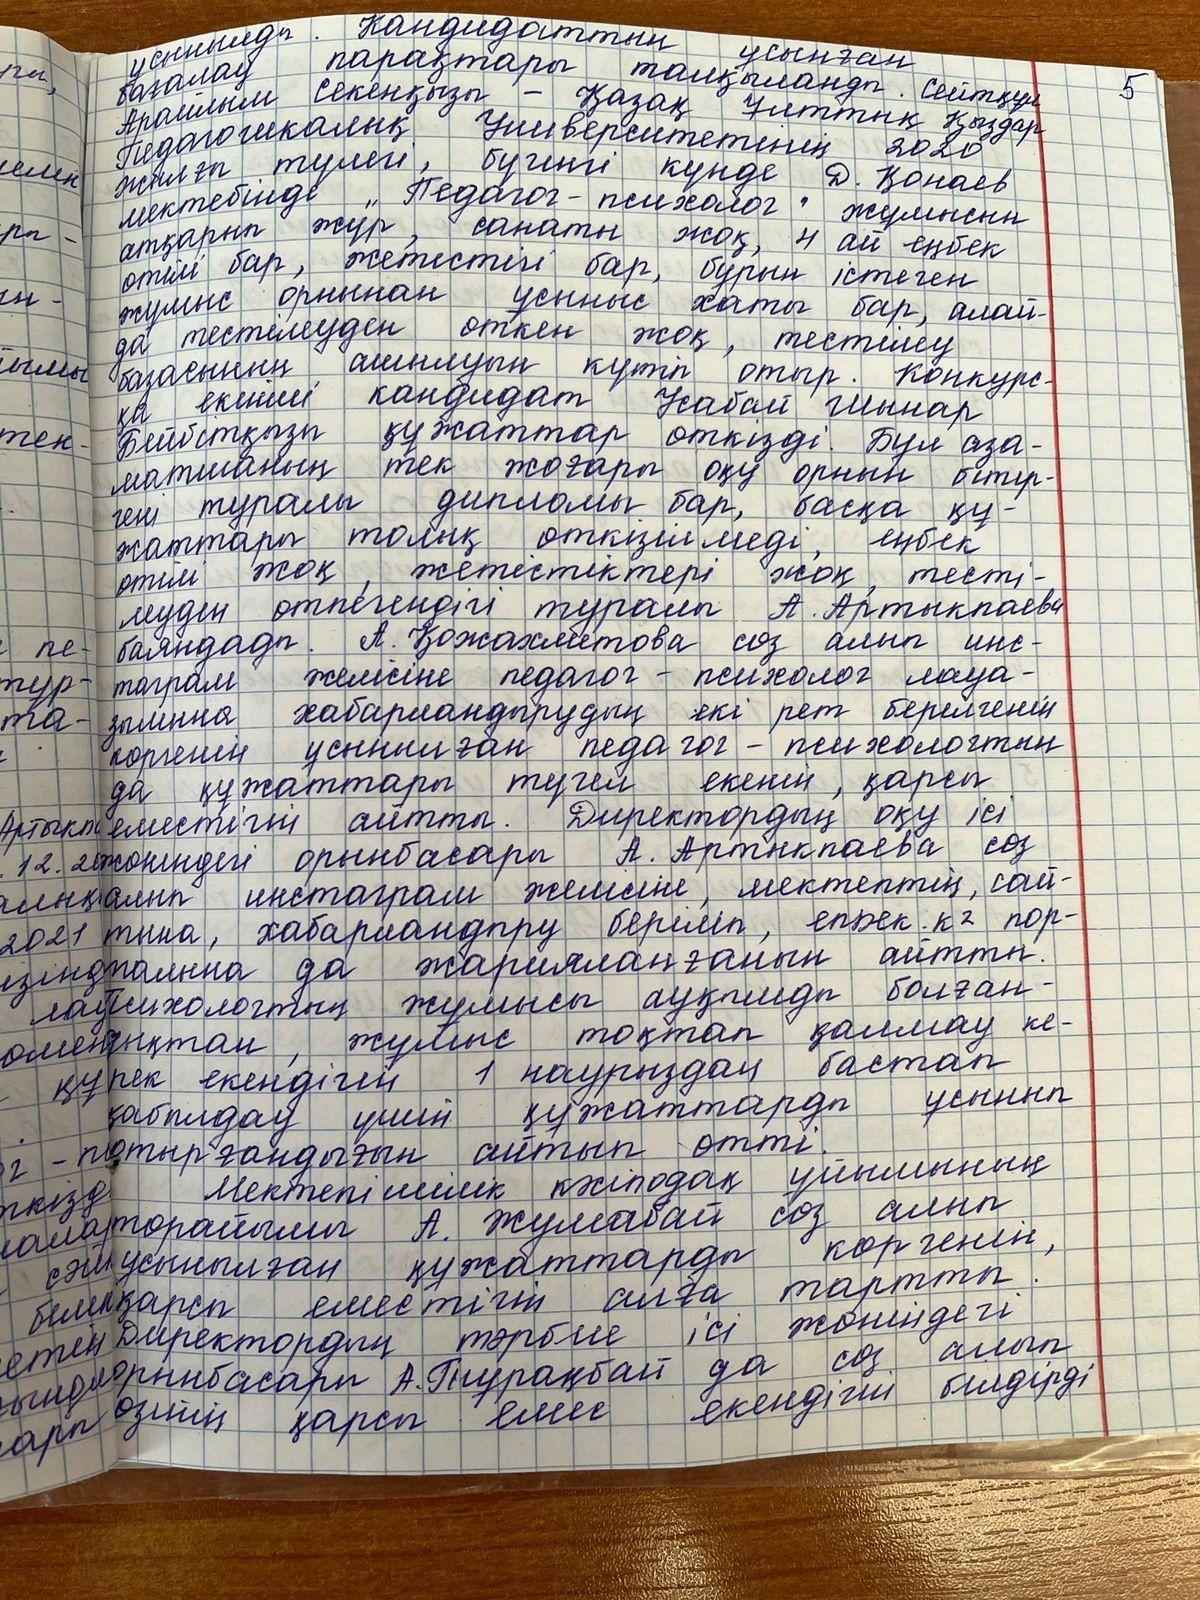 5
усынылды. Кандидаттың усынған
бағалау парақтары талқыланды. Сейтқул
Арайлым Секенқызы – Қазақ Ұлттық Қыздар
Педагогикалық Университетінің 2020
жылғы түлегі, бүгінгі күнде Д. Қонаев
мектебінде „Педагог-психолог" жумысын
атқарып жүр, санаты жоқ, 4 ай еңбек
өтілі бар, жетістігі бар, бурын істеген
жумыс орнынан усыныс хаты бар, алай-
да тестілеуден өткен жоқ, тестілеу
базасының ашылуын күтіп отыр. Конкурс-
қа екінші кандидат Усабай Шынар
Бейбітқызы құжаттар өткізді. Бул аза-
матшаның тек жоғары оқу орнын бітір-
гені туралы дипломы бар, басқа құ-
жаттары толық өткізілмеді, еңбек
өтілі жоқ, жетістіктері жоқ, тесті-
леуден өтпегендігі туралы А. Артыкпаева
баяндады. А. Қожахметова сөз алып инс-
таграм желісіне педагог-психолог лауа-
зымына хабарландырудың екі рет берілгенін
көргенін усынылған педагог-психологтың
да құжаттары түгел екенін, қарсы
еместігін айтты. Директордың оқу ісі
жөніндегі орынбасары А. Артыкпаева сөз
алып инстаграм желісіне, мектептің, сай-
тына, хабарландыру беріліп, епбек.кz пор-
талына да жарияланғанын айтты.
Психологтың жумысы ауқымды болған-
дықтан, жумыс тоқтап қалмау ке-
рек екендігін 1 наурыздан бастап
қабылдау үшін құжаттарды усынып
отырғандығын айтып өтті.
Мектепішілік кәсіподақ уйымының
төрайымы А. Жумабай сөз алып
усынылған құжаттарды көргенін,
қарсы еместігін алға тартты.
Директордың тәрбие ісі жөніндегі
орынбасары А. Тнурақбай да сөз алып
өзінің қарсы емес екендігін білдірді